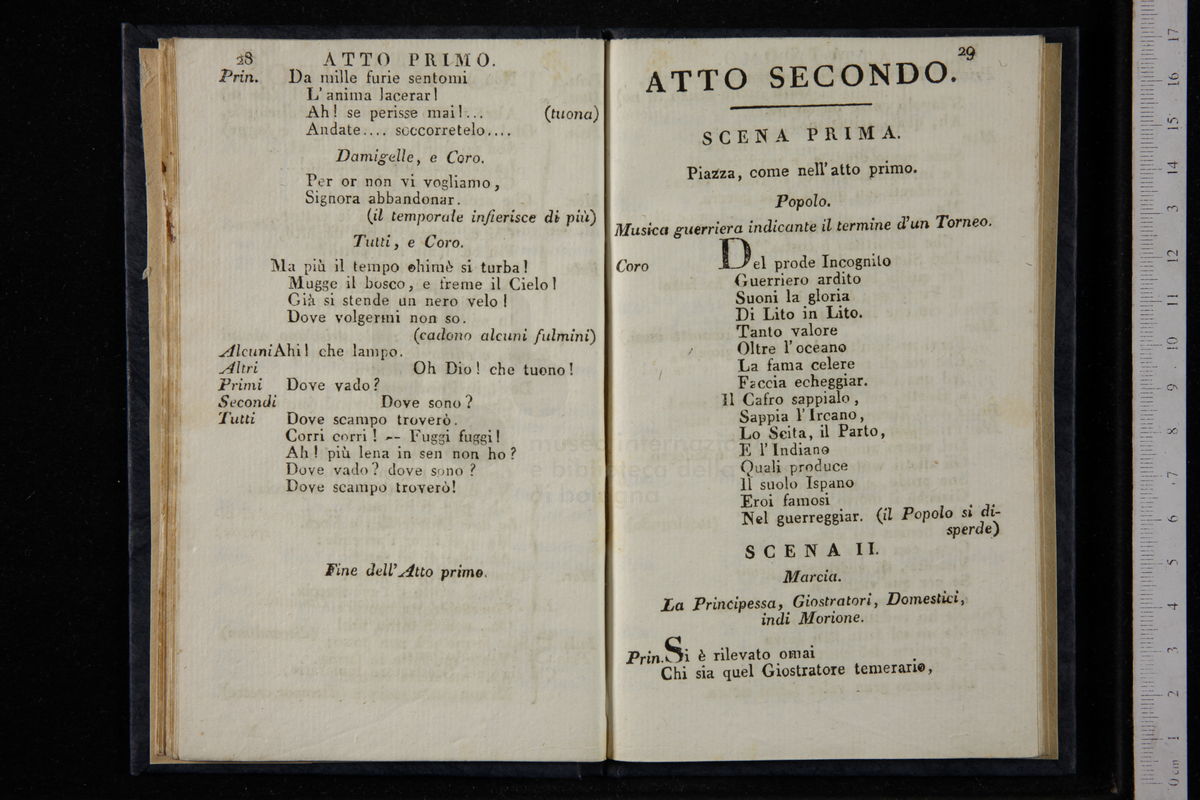 28 ATTO PRIMO.
Prin. Da mille furie sentomi
L' anima lacerar!
Ah! se perisse mai!... (tuona)
Andate.... soccorretelo....
Damigelle, e Coro.
Per or non vi vogliamo,
Signora abbandonar.
(il temporale infierisce di più)
Tutti, e Coro.
Ma più il tempo ohimè si turba!
Mugge il bosco, e freme il Cielo!
Già si stende un nero velo!
Dove volgermi non so.
(cadono alcuni fulmini)
Alcuni Ahi! che lampo.
Altri Oh Dio! che tuono!
Primi Dove vado?
Secondi Dove sono?
Tutti Dove scampo troverò.
Corri corri! -- Fuggi fuggi!
Ah! più lena in sen non ho?
Dove vado? dove sono?
Dove scampo troverò!
Fine dell' Atto primo.
29
ATTO SECONDO.
SCENA PRIMA.
Piazza, come nell' atto primo.
Popolo.
Musica guerriera indicante il termine d'un Torneo.
Coro Del prode Incognito
Guerriero ardito
Suoni la gloria
Di Lito in Lito.
Tanto valore
Oltre l' oceano
La fama celere
Faccia echeggiar.
Il Cafro sappialo,
Sappia l' Ircano,
Lo Scita, il Parto,
E l' Indiano
Quali produce
Il suolo Ispano
Eroi famosi
Nel guerreggiar. (il Popolo si di-
sperde)
SCENA II.
Marcia.
La Principessa, Giostratori, Domestici,
indi Morione.
Prin. Si è rilevato omai
Chi sia quel Giostratore temerario,
museo internaz
e biblioteca della
di bologna
0 cm 1 2 3 4 5 6 7 8 9 10 11 12 13 14 15 16 17